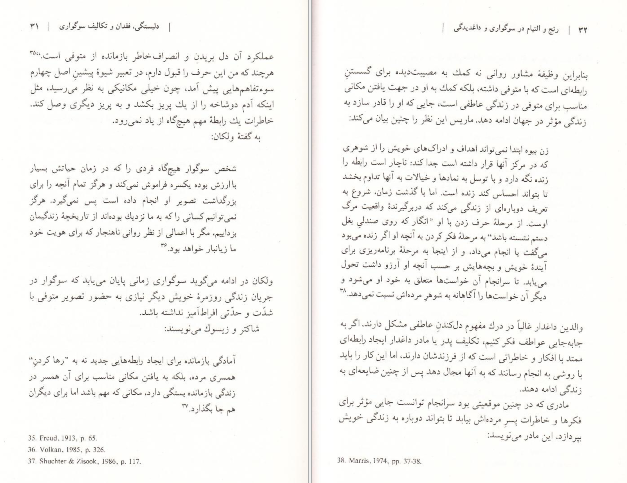 دلبستگی، فقدان و تکالیف سوگواری | ۳۱
عملکرد آن دل بریدن و انصراف‌خاطر بازمانده از متوفی است."۳۵
هرچند که من این حرف را قبول دارم، در تعبیر شیوهٔ پیشینِ اصل چهارم
سوء‌تفاهم‌هایی پیش آمد، چون خیلی مکانیکی به نظر می‌رسید، مثل
اینکه آدم دوشاخه را از یک پریز بکشد و به پریز دیگری وصل کند.
خاطرات یك رابطهٔ مهم هیچ‌گاه از یاد نمی‌رود.
به گفتهٔ ولکان:
شخص سوگوار هیچ‌گاه فردی را که در زمان حیاتش بسیار
با ارزش بوده یکسره فراموش نمی‌کند و هرگز تمام آنچه را برای
بزرگداشت تصویر او انجام داده است پس نمی‌گیرد. هرگز
نمی‌توانیم کسانی را که به ما نزدیك بوده‌اند از تاریخچهٔ زندگیمان
بزداییم، مگر با اعمالی از نظر روانی ناهنجار که برای هویت خود
ما زیانبار خواهد بود.۳۶
ولکان در ادامه می‌گوید سوگواری زمانی پایان می‌یابد که سوگوار در
جریان زندگی روزمرهٔ خویش دیگر نیازی به حضور تصویر متوفی با
شدّت و حدّتی افراط‌آمیز نداشته باشد.
شاکتر و زیسوك می‌نویسند:
آمادگی بازمانده برای ایجاد رابطه‌هایی جدید نه به "رها کردنِ"
همسری مرده، بلکه به یافتن مکانی مناسب برای آن همسر در
زندگی بازمانده بستگی دارد، مکانی که مهم باشد اما برای دیگران
هم جا بگذارد.۳۷
35. Freud, 1913, p. 65.
36. Volkan, 1985, p. 326.
37. Shuchter & Zisook, 1986, p. 117.
۳۲ | رنج و التیام در سوگواری و داغدیدگی
بنابراین وظیفهٔ مشاور روانی نه کمك به مصیبت‌دیده برای گسستنِ
رابطه‌ای است که با متوفی داشته، بلکه کمك به او در جهت یافتن مکانی
مناسب برای متوفی در زندگی عاطفی است، جایی که او را قادر سازد به
زندگی مؤثر در جهان ادامه دهد. ماریس این نظر را چنین بیان می‌کند:
زن بیوه ابتدا نمی‌تواند اهداف و ادراک‌های خویش را از شوهری
که در مرکز آنها قرار داشته است جدا کند؛ ناچار است رابطه را
زنده نگه دارد و با توسل به نمادها و خیالات به آنها تداوم بخشد
تا بتواند احساس کند زنده است. اما با گذشت زمان، شروع به
تعریف دوباره‌ای از زندگی می‌کند که دربرگیرندهٔ واقعیت مرگ
اوست. از مرحلهٔ حرف زدن با او "انگار که روی صندلیِ بغل
دستم نشسته باشد" به مرحلهٔ فکر کردن به آنچه او اگر زنده می‌بود
می‌گفت یا انجام می‌داد، و از اینجا به مرحلهٔ برنامه‌ریزی برای
آیندهٔ خویش و بچه‌هایش بر حسب آنچه او آرزو داشت تحول
می‌یابد. تا سرانجام آن خواست‌ها متعلق به خود او می‌شود و
دیگر آن خواست‌ها را آگاهانه به شوهر مرده‌اش نسبت نمی‌دهد.۳۸
والدین داغدار غالباً در درك مفهوم دل‌کندنِ عاطفی مشکل دارند. اگر به
جابه‌جایی عواطف فکر کنیم، تکلیف پدر یا مادر داغدار ایجاد رابطه‌ای
ممتد با افکار و خاطراتی است که از فرزندشان دارند، اما این کار را باید
با روشی به انجام رسانند که به آنها مجال دهد پس از چنین ضایعه‌ای به
زندگی ادامه دهند.
مادری که در چنین موقعیتی بود سرانجام توانست جایی مؤثر برای
فکرها و خاطرات پسرِ مرده‌اش بیابد تا بتواند دوباره به زندگی خویش
بپردازد. این مادر می‌نویسد:
38. Marris, 1974, pp. 37-38.